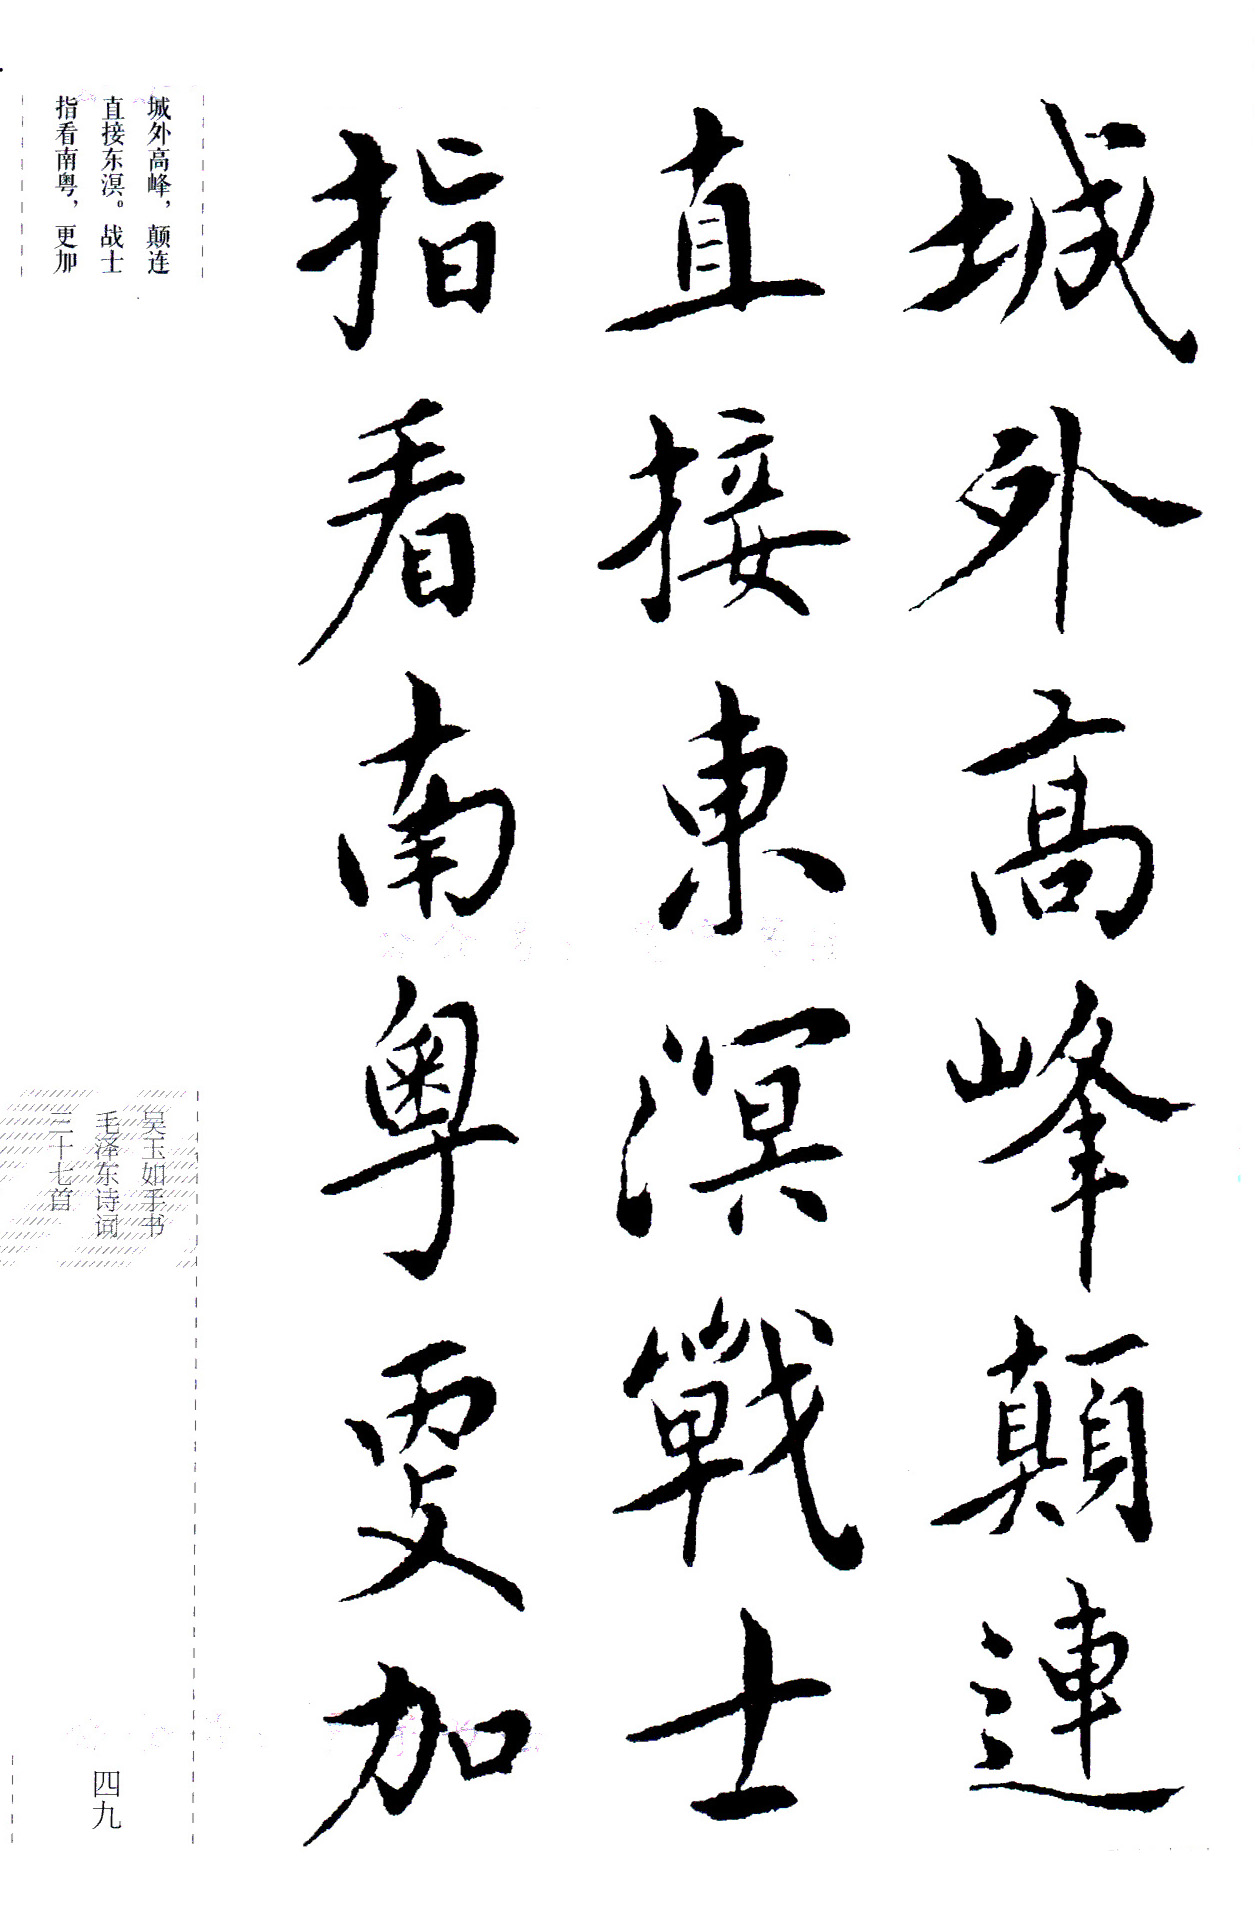 城外高峰顛連
直接東溟戰士
指看南粤更加
城外高峰，颠连
直接东溟。战士
指看南粤，更加
吴玉如手书
毛泽东诗词
三十七首
四九